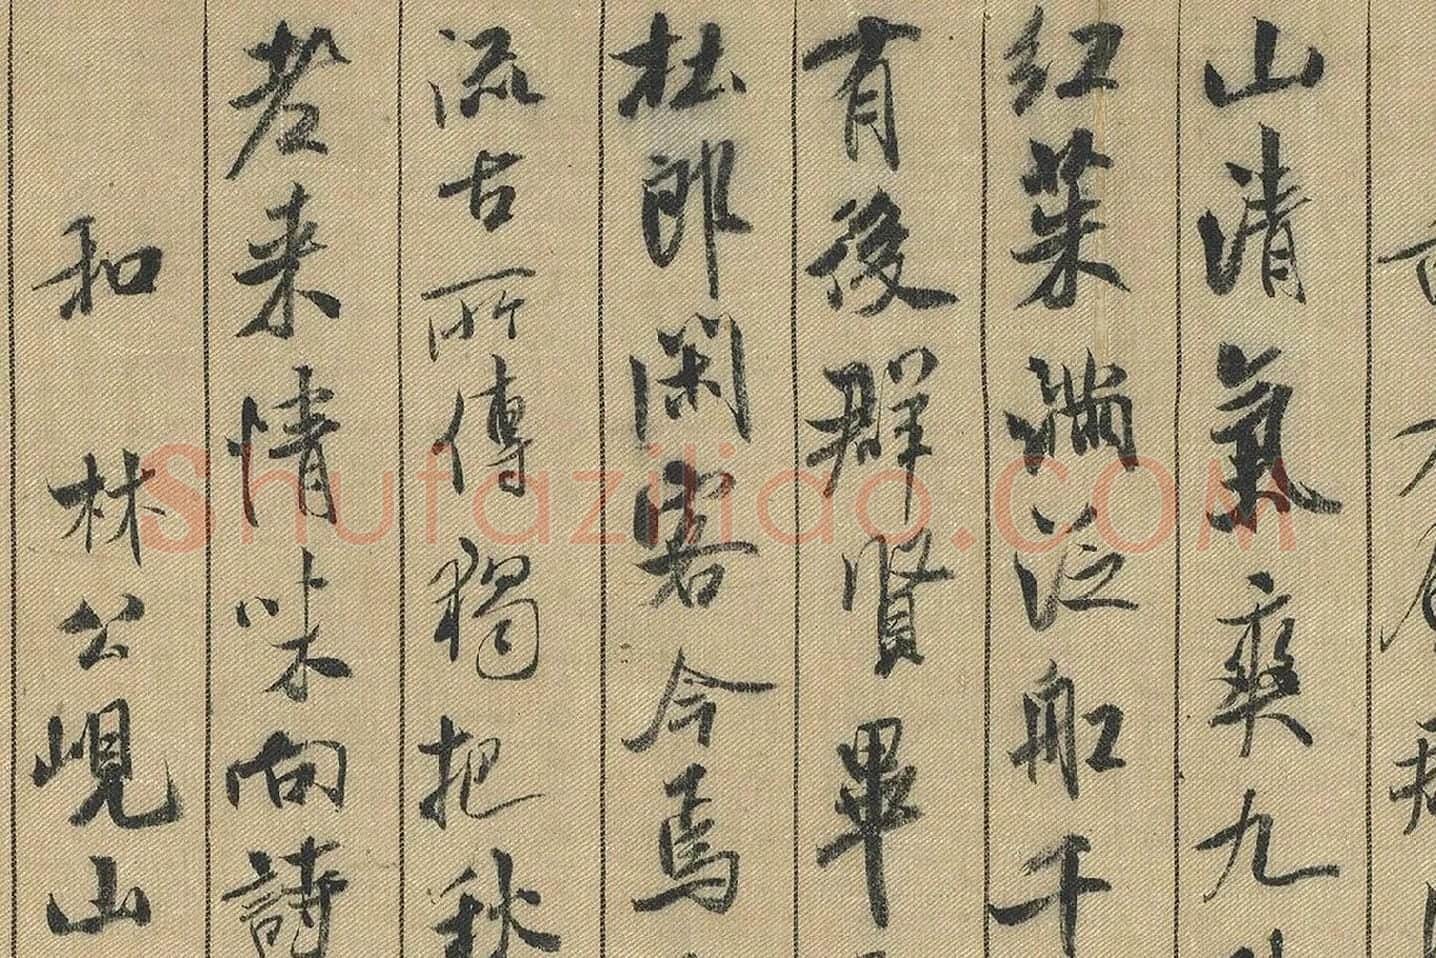 山清氣爽九
紅葉満泛船千
有後群賢畢
杜郎閑客今焉
流古所傳獨把秋
若来情味向詩
和林公峴山
Shufaziliao.com